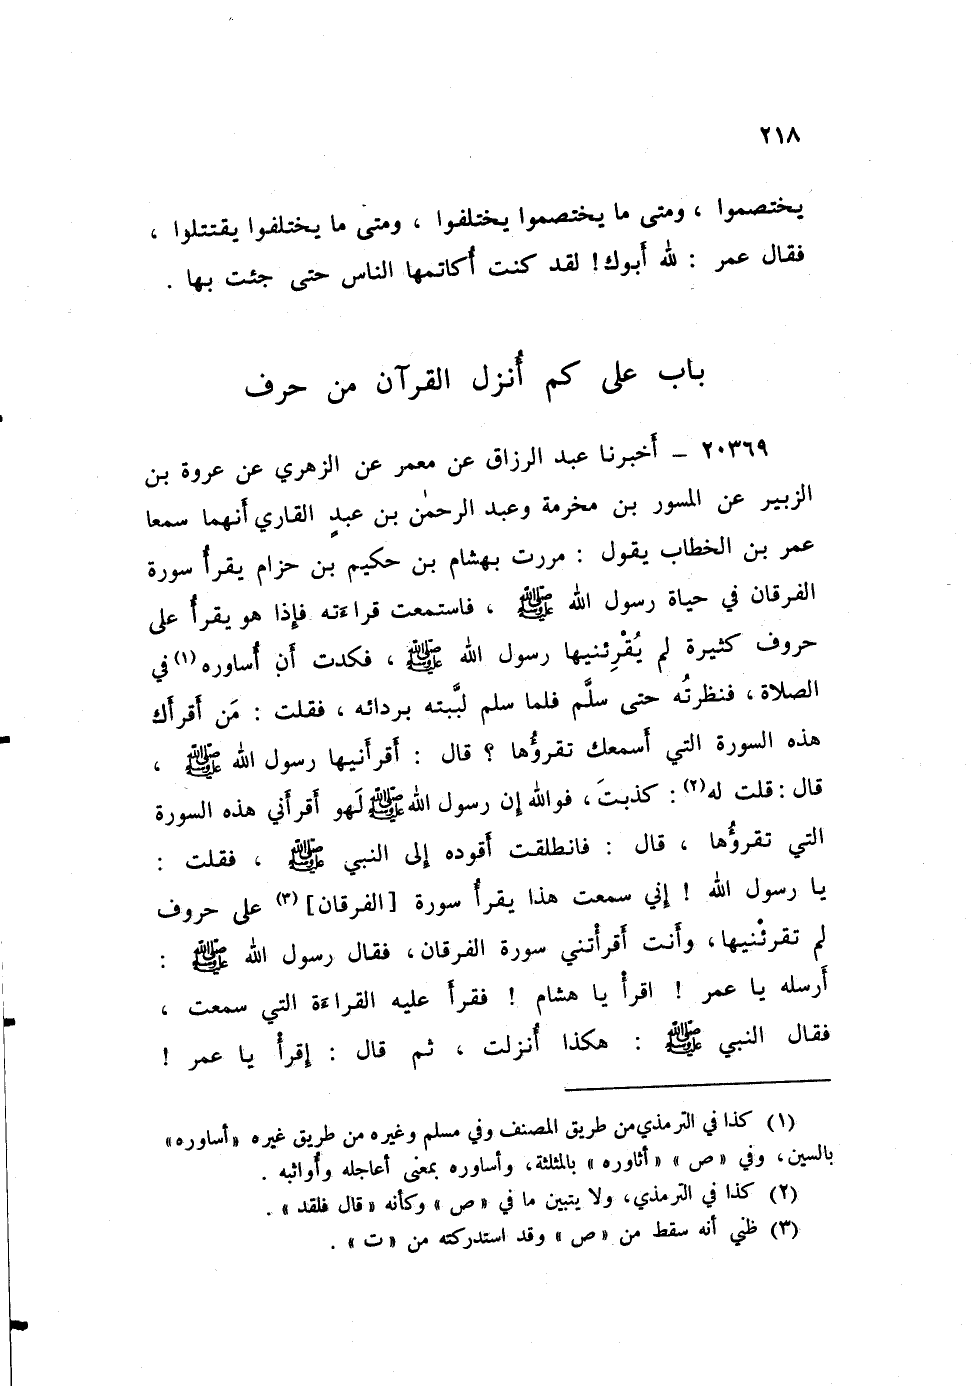 ٢١٨
يختصموا ، ومتى ما يختصموا يختلفوا ، ومتى ما يختلفوا يقتتلوا ،
فقال عمر : لله أبوك! لقد كنت أُكاتمها الناس حتى جئت بها .
باب على كم أُنزل القرآن من حرف
٢٠٣٦٩ – أخبرنا عبد الرزاق عن معمر عن الزهري عن عروة بن
الزبير عن المسور بن مخرمة وعبد الرحمٰن بن عبدٍ القاري أنهما سمعا
عمر بن الخطاب يقول : مررت بهشام بن حكيم بن حزام يقرأُ سورة
الفرقان في حياة رسول الله ﷺ ، فاستمعت قراءته فإذا هو يقرأُ على
حروف كثيرة لم يُقْرِئنيها رسول الله ﷺ ، فكدت أن أُساوره(١) في
الصلاة ، فنظرتُه حتى سلَّم فلما سلم لبَّبته بردائه ، فقلت : مَن أقرأَك
هذه السورة التي أسمعك تقروُها ؟ قال : أقرأنيها رسول الله ﷺ ،
قال : قلت له(٢) : كذبتَ ، فوالله إن رسول الله ﷺ لَهو أقرأني هذه السورة
التي تقروُها ، قال : فانطلقت أقوده إلى النبي ﷺ ، فقلت :
يا رسول الله ! إني سمعت هذا يقرأُ سورة [الفرقان] (٣) على حروف
لم تقرئْنيها، وأنت أقرأْتني سورة الفرقان، فقال رسول الله ﷺ :
أَرسله يا عمر ! اقرأْ يا هشام ! فقرأَ عليه القراءة التي سمعت ،
فقال النبي ﷺ : هكذا أُنزلت ، ثم قال : إقرأْ يا عمر !
(١) كذا في الترمذي من طريق المصنف وفي مسلم وغيره من طريق غيره «أساوره»
بالسين، وفي «ص» «أثاوره» بالمثلثة، وأساوره بمعنى أعاجله وأُواثبه .
(٢) كذا في الترمذي، ولا يتبين ما في «ص» وكأنه «قال فلقد» .
(٣) ظني أنه سقط من «ص» وقد استدركته من «ت» .